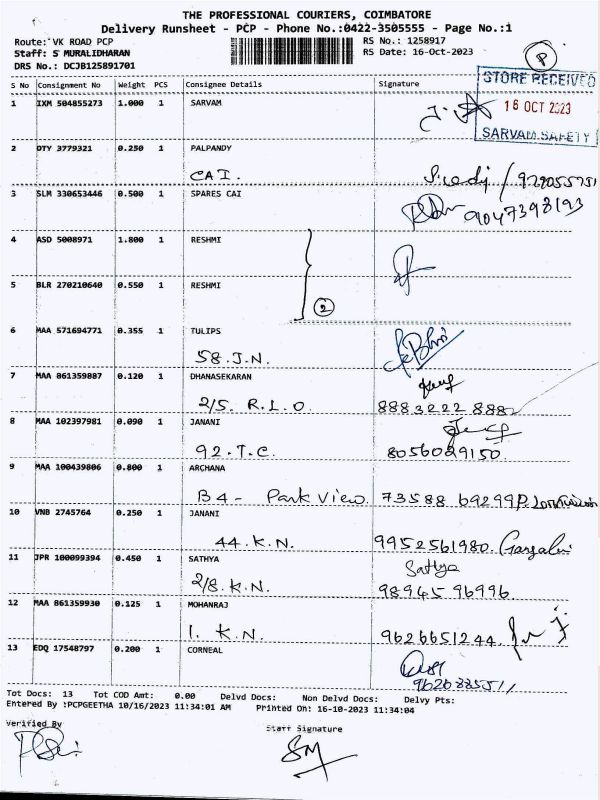 THE PROFESSIONAL COURIERS, COIMBATORE
Delivery Runsheet - PCP - Phone No.:0422-3505555 - Page No.:1
Route: VK ROAD PCP RS No.: 1258917
Staff: S MURALIDHARAN RS Date: 16-Oct-2023
DRS No.: DCJB125891701
P
S No Consignment No Weight PCS Consignee Details Signature
STORE RECEIVED
16 OCT 2023
SARVAM SAFETY
1 IXM 504855273 1.000 1 SARVAM
2 OTY 3779321 0.250 1 PALPANDY
CAI.
3 SLM 330653446 0.500 1 SPARES CAI
9047398193
4 ASD 5008971 1.800 1 RESHMI
5 BLR 270210640 0.550 1 RESHMI
2
6 MAA 571694771 0.355 1 TULIPS
58.J.N.
7 MAA 861359887 0.120 1 DHANASEKARAN
2/5. R.L.O. 8883222 888
8 MAA 102397981 0.090 1 JANANI
92.T.C. 8056029150.
9 MAA 100439806 0.800 1 ARCHANA
B4- Park View. 73588 69299
10 VNB 2745764 0.250 1 JANANI
44.K.N. 9952561980.
11 JPR 100099394 0.450 1 SATHYA
Sathya
2/8. K.N. 98945 96996
12 MAA 861359930 0.125 1 MOHANRAJ
1. K.N. 9626651244
13 EDQ 17548797 0.200 1 CORNEAL
Tot Docs: 13 Tot COD Amt: 0.00 Delvd Docs: Non Delvd Docs: Delvy Pts:
Entered By :PCPGEETHA 10/16/2023 11:34:01 AM Printed On: 16-10-2023 11:34:04
Verified By Staff Signature